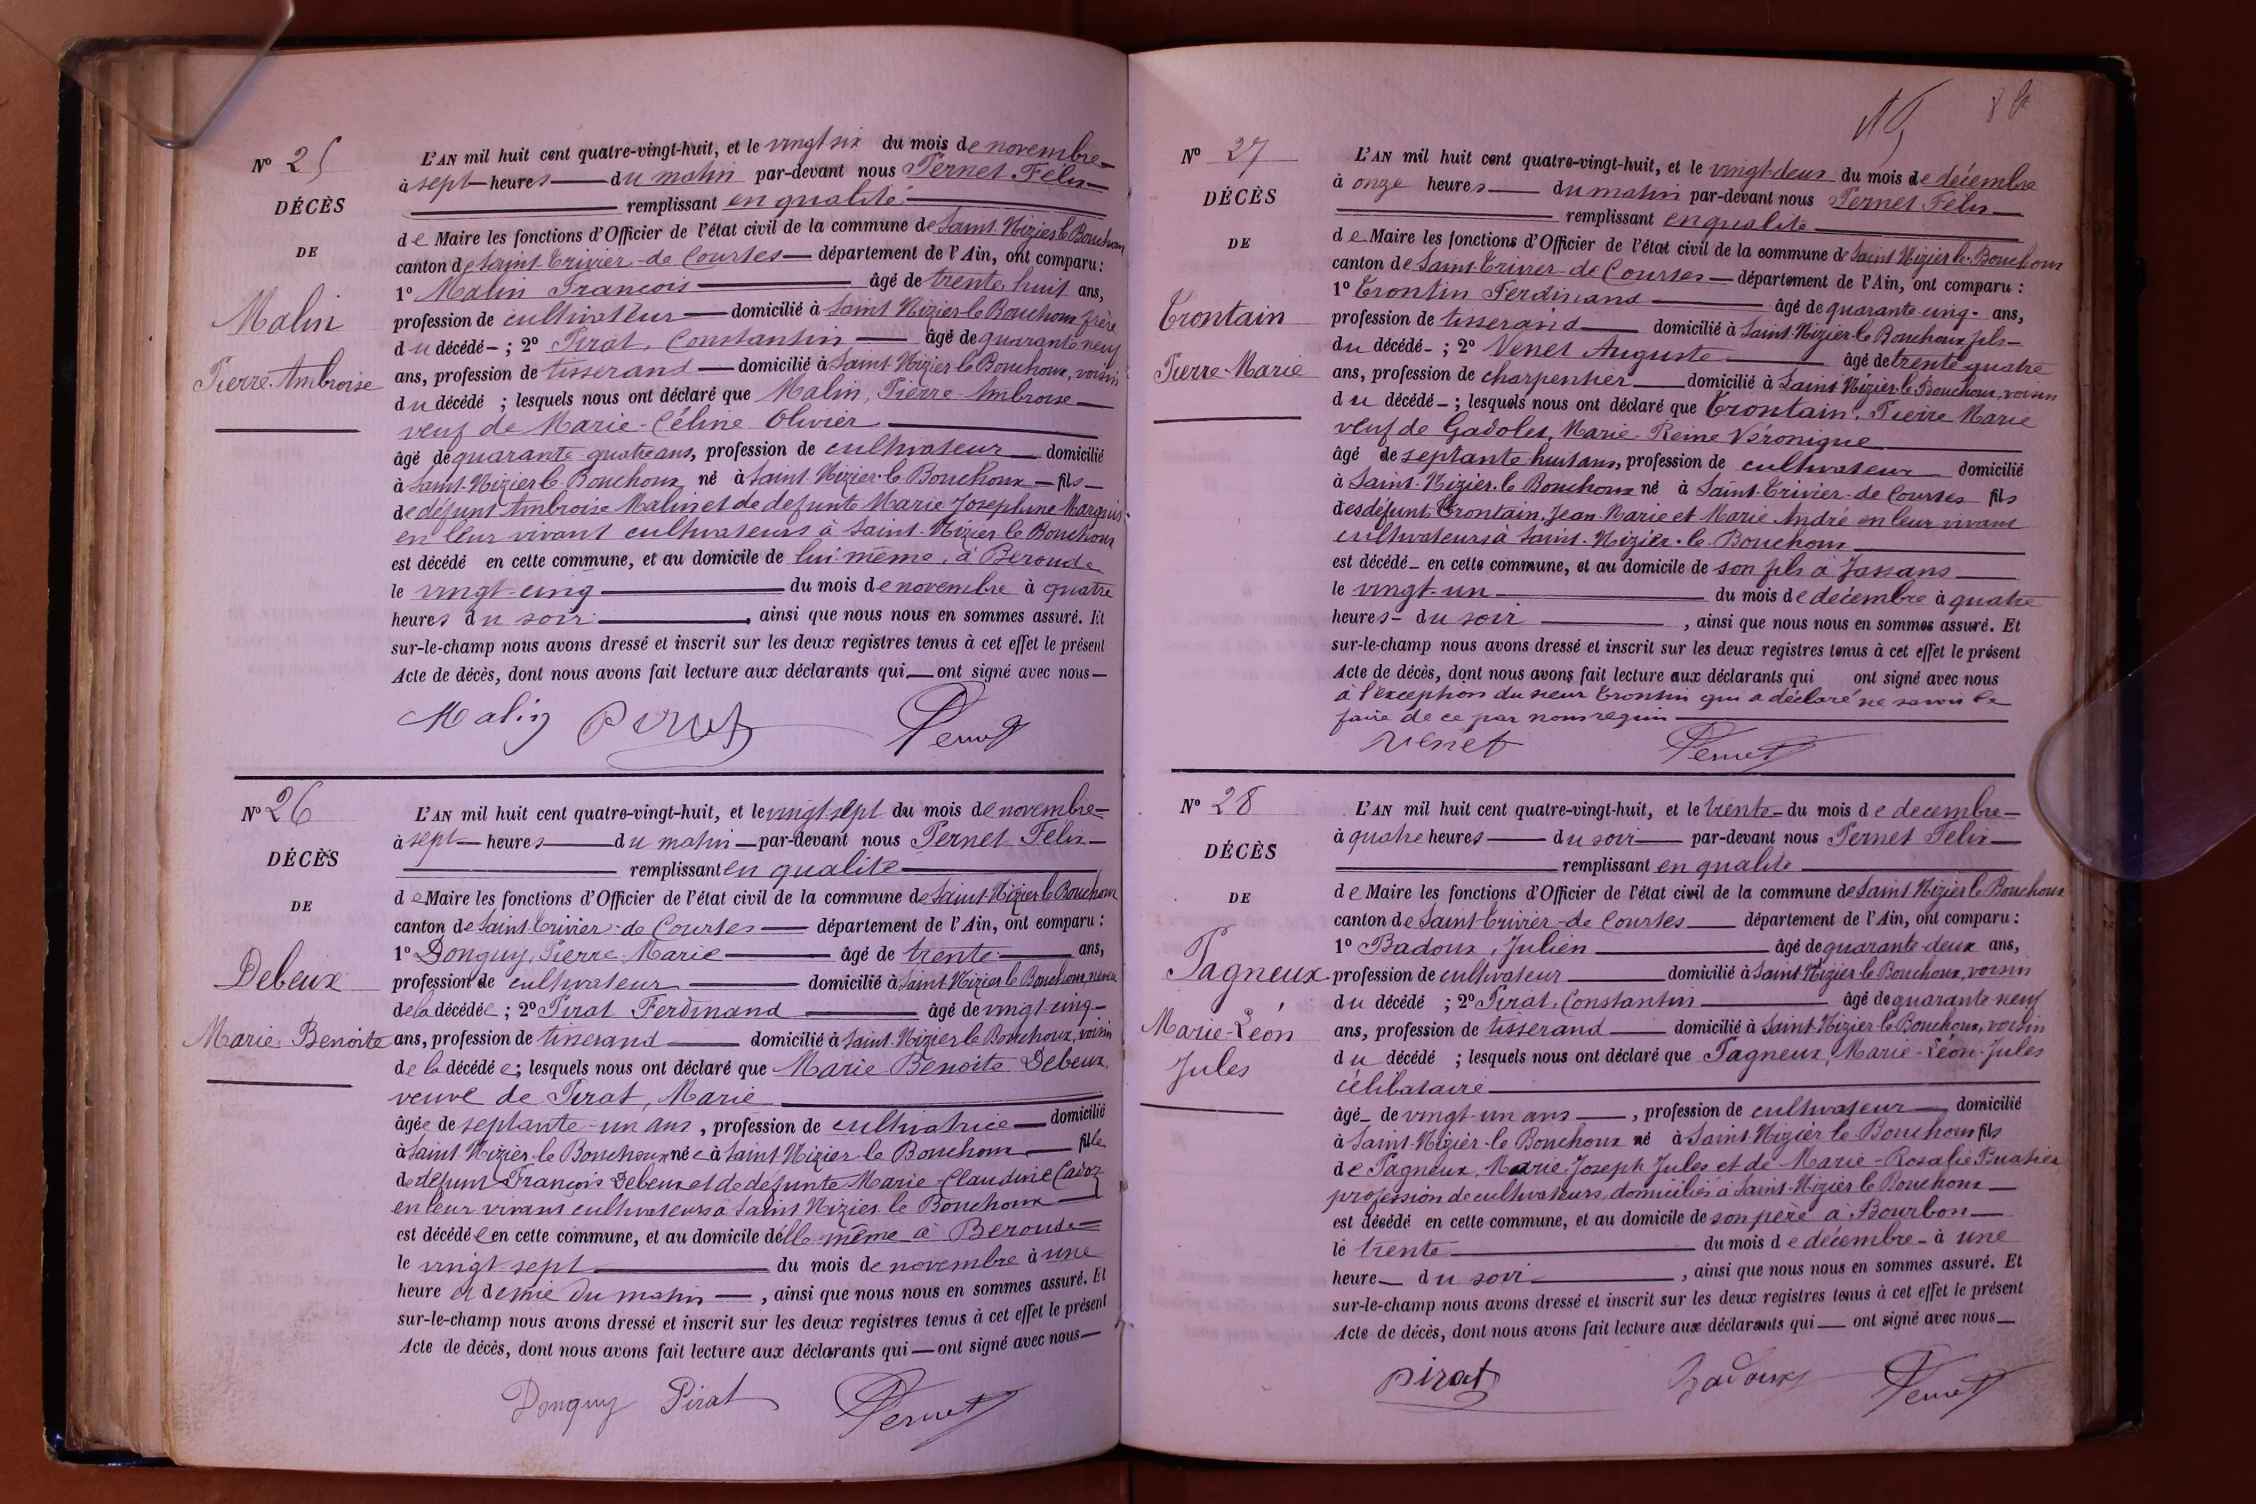 N° 25
DÉCÈS
DE
Malin
Pierre-Ambroise
L'AN mil huit cent quatre-vingt-huit, et le vingt six du mois de novembre
à sept heures du matin par-devant nous Pernet Félix
remplissant en qualité
de Maire les fonctions d'Officier de l'état civil de la commune de Saint-Nizier-le-Bouchoux
canton de Saint-Trivier-de-Courtes département de l'Ain, ont comparu :
1° Malin François âgé de trente huit ans,
profession de cultivateur domicilié à Saint-Nizier-le-Bouchoux, frère
du décédé ; 2° Pirat, Constantin âgé de quarante neuf
ans, profession de tisserand domicilié à Saint-Nizier-le-Bouchoux, voisin
du décédé ; lesquels nous ont déclaré que Malin, Pierre-Ambroise
veuf de Marie-Céline Olivier
âgé de quarante-quatre ans, profession de cultivateur domicilié
à Saint-Nizier-le-Bouchoux né à Saint-Nizier-le-Bouchoux fils
de défunt Ambroise Malin et de defunte Marie Josephine Marguis
en leur vivant cultivateurs à Saint-Nizier-le-Bouchoux
est décédé en cette commune, et au domicile de lui-même, à Beroude
le vingt-cinq du mois de novembre à quatre
heures du soir, ainsi que nous nous en sommes assuré. Et
sur-le-champ nous avons dressé et inscrit sur les deux registres tenus à cet effet le présent
Acte de décès, dont nous avons fait lecture aux déclarants qui ont signé avec nous
Malin Pirat Pernet
N° 26
DÉCÈS
DE
Debeux
Marie-Benoite
L'AN mil huit cent quatre-vingt-huit, et le vingt sept du mois de novembre
à sept heures du matin par-devant nous Pernet Félix
remplissant en qualité
de Maire les fonctions d'Officier de l'état civil de la commune de Saint-Nizier-le-Bouchoux
canton de Saint-Trivier-de-Courtes département de l'Ain, ont comparu :
1° Donguy, Pierre-Marie âgé de trente ans,
profession de cultivateur domicilié à Saint-Nizier-le-Bouchoux, neveu
de la décédée ; 2° Pirat Ferdinand âgé de vingt-cinq
ans, profession de tisserand domicilié à Saint-Nizier-le-Bouchoux, voisin
de la décédée ; lesquels nous ont déclaré que Marie-Benoite Debeux,
veuve de Pirat, Marie
âgée de septante-un ans, profession de cultivatrice domicilié
à Saint-Nizier-le-Bouchoux née à Saint-Nizier-le-Bouchoux fille
de defunt François Debeux et de defunte Marie-Claudine Cadoz
en leur vivant cultivateurs à Saint Nizier le Bouchoux
est décédée en cette commune, et au domicile d'elle-même à Beroude
le vingt sept du mois de novembre à une
heure et demie du matin, ainsi que nous nous en sommes assuré. Et
sur-le-champ nous avons dressé et inscrit sur les deux registres tenus à cet effet le présent
Acte de décès, dont nous avons fait lecture aux déclarants qui ont signé avec nous
Donguy Pirat Pernet
N° 27
DÉCÈS
DE
Trontain
Pierre-Marie
L'AN mil huit cent quatre-vingt-huit, et le vingt-deux du mois de décembre
à onze heures du matin par-devant nous Pernet Félix
remplissant en qualité
de Maire les fonctions d'Officier de l'état civil de la commune de Saint Nizier-le-Bouchoux
canton de Saint-Trivier-de-Courtes département de l'Ain, ont comparu :
1° Trontin Ferdinand âgé de quarante cinq ans,
profession de tisserand domicilié à Saint-Nizier-le-Bouchoux, fils
du décédé ; 2° Venet Auguste âgé de trente quatre
ans, profession de charpentier domicilié à Saint Nizier-le-Bouchoux, voisin
du décédé ; lesquels nous ont déclaré que Trontain, Pierre Marie
veuf de Gadolet, Marie-Reine Véronique
âgé de septante-huit ans, profession de cultivateur domicilié
à Saint-Nizier-le-Bouchoux né à Saint-Trivier-de-Courtes fils
des défunt Trontain, Jean Marie et Marie André en leur vivant
cultivateurs à Saint-Nizier-le-Bouchoux
est décédé en cette commune, et au domicile de son fils à Jassans
le vingt-un du mois de décembre à quatre
heures du soir, ainsi que nous nous en sommes assuré. Et
sur-le-champ nous avons dressé et inscrit sur les deux registres tenus à cet effet le présent
Acte de décès, dont nous avons fait lecture aux déclarants qui ont signé avec nous
à l'exception du sieur Trontin qui a déclaré ne savoir le
faire de ce par nous requis
Venet Pernet
N° 28
DÉCÈS
DE
Pagneux
Marie-Léon
Jules
L'AN mil huit cent quatre-vingt-huit, et le trente du mois de decembre
à quatre heures du soir par-devant nous Pernet Félix
remplissant en qualité
de Maire les fonctions d'Officier de l'état civil de la commune de Saint Nizier le Bouchoux
canton de Saint-Trivier-de-Courtes département de l'Ain, ont comparu :
1° Badoux, Julien âgé de quarante-deux ans,
profession de cultivateur domicilié à Saint Nizier le Bouchoux, voisin
du décédé ; 2° Pirat, Constantin âgé de quarante neuf
ans, profession de tisserand domicilié à Saint-Nizier-le-Bouchoux, voisin
du décédé ; lesquels nous ont déclaré que Pagneux, Marie-Léon-Jules
célibataire
âgé de vingt-un ans, profession de cultivateur domicilié
à Saint-Nizier-le Bouchoux né à Saint Nizier le Bouchoux fils
de Pagneux, Marie Joseph Jules et de Marie-Rosalie Buatier
profession de cultivateurs, domiciliés à Saint-Nizier le Bouchoux
est décédé en cette commune, et au domicile de son père à Bourbon
le trente du mois de décembre à une
heure du soir, ainsi que nous nous en sommes assuré. Et
sur-le-champ nous avons dressé et inscrit sur les deux registres tenus à cet effet le présent
Acte de décès, dont nous avons fait lecture aux déclarants qui ont signé avec nous
Pirat Badoux Pernet